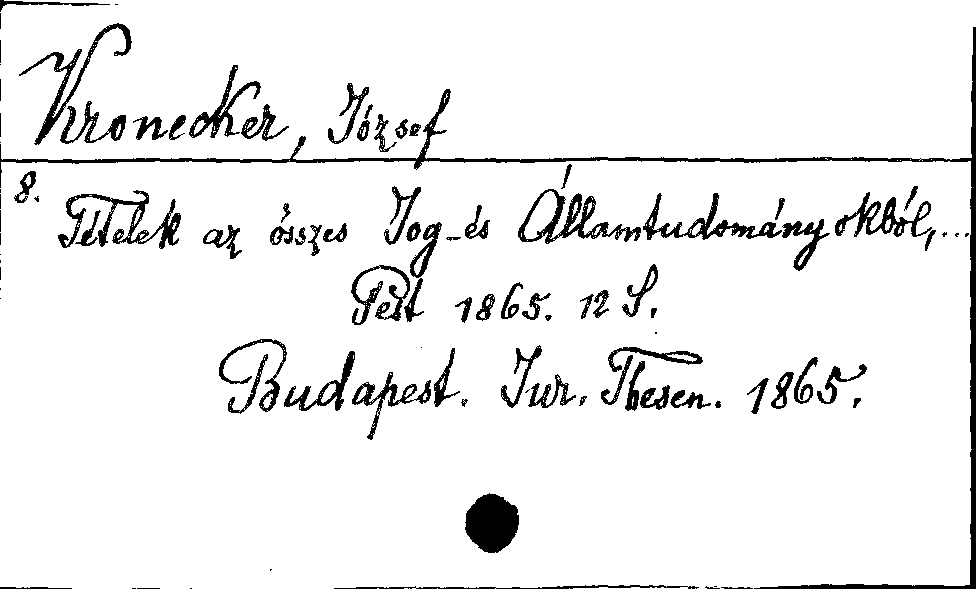 Kronecker, József
8.
Tételek az összes Jog-és Államtudományokból,...
Pest 1865. 12 S.
Budapest. Jur. Thesen. 1865.